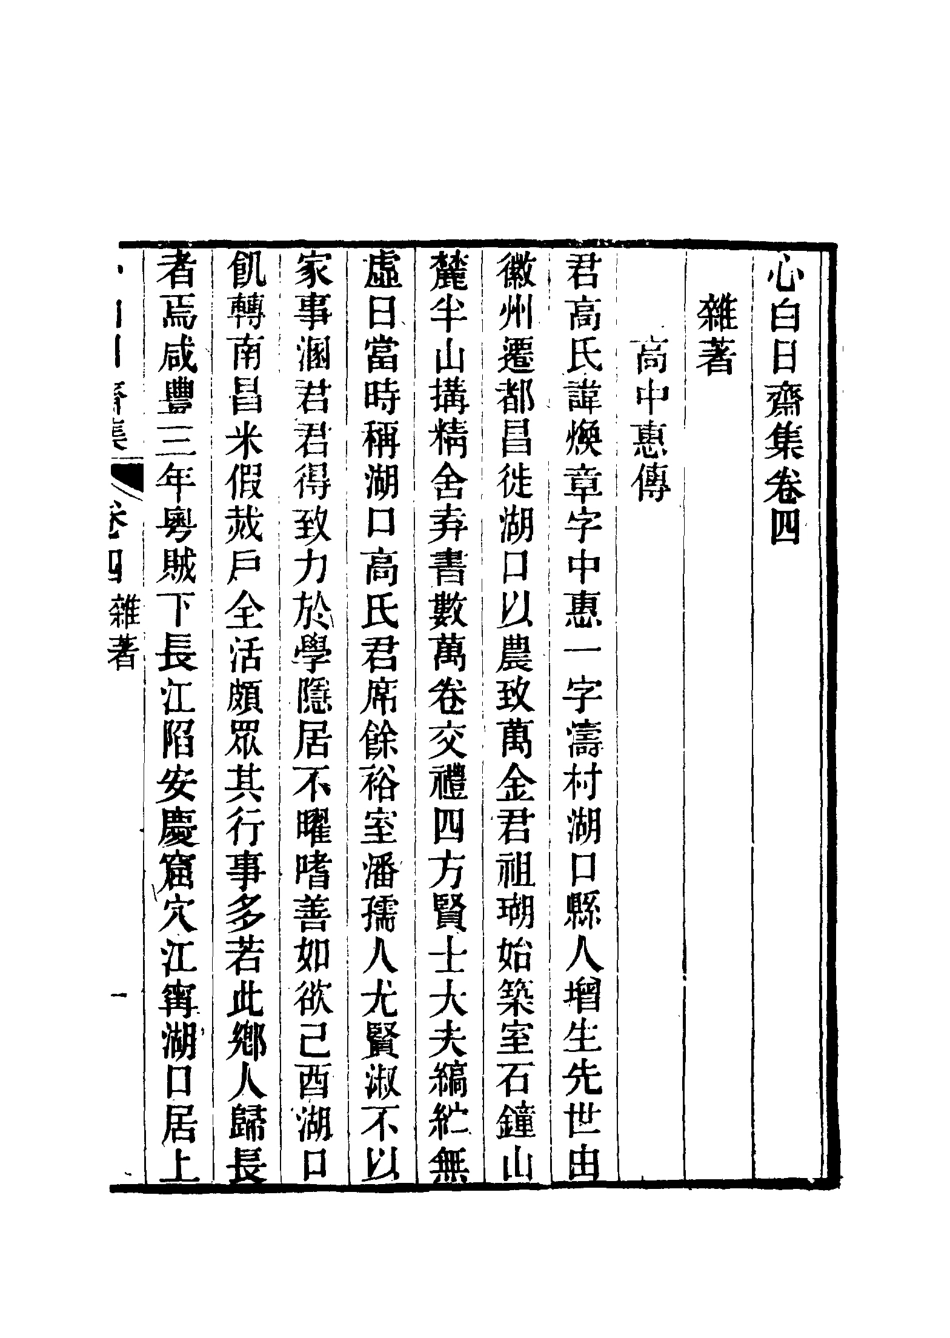 心白日齋集卷四
雜著
高中惠傳
君高氏諱煥章字中惠一字濤村湖口縣人增生先世由
徽州遷都昌徙湖口以農致萬金君祖瑚始築室石鐘山
麓半山搆精舍弆書數萬卷交禮四方賢士大夫縞紵無
虛日當時稱湖口高氏君席餘裕室潘孺人尤賢淑不以
家事溷君君得致力於學隱居不曜嗜善如欲己酉湖口
飢轉南昌米假烖戶全活頗眾其行事多若此鄉人歸長
者焉咸豐三年粵賊下長江陷安慶窟穴江甯湖口居上
心白日齋集 卷四 雜著 一